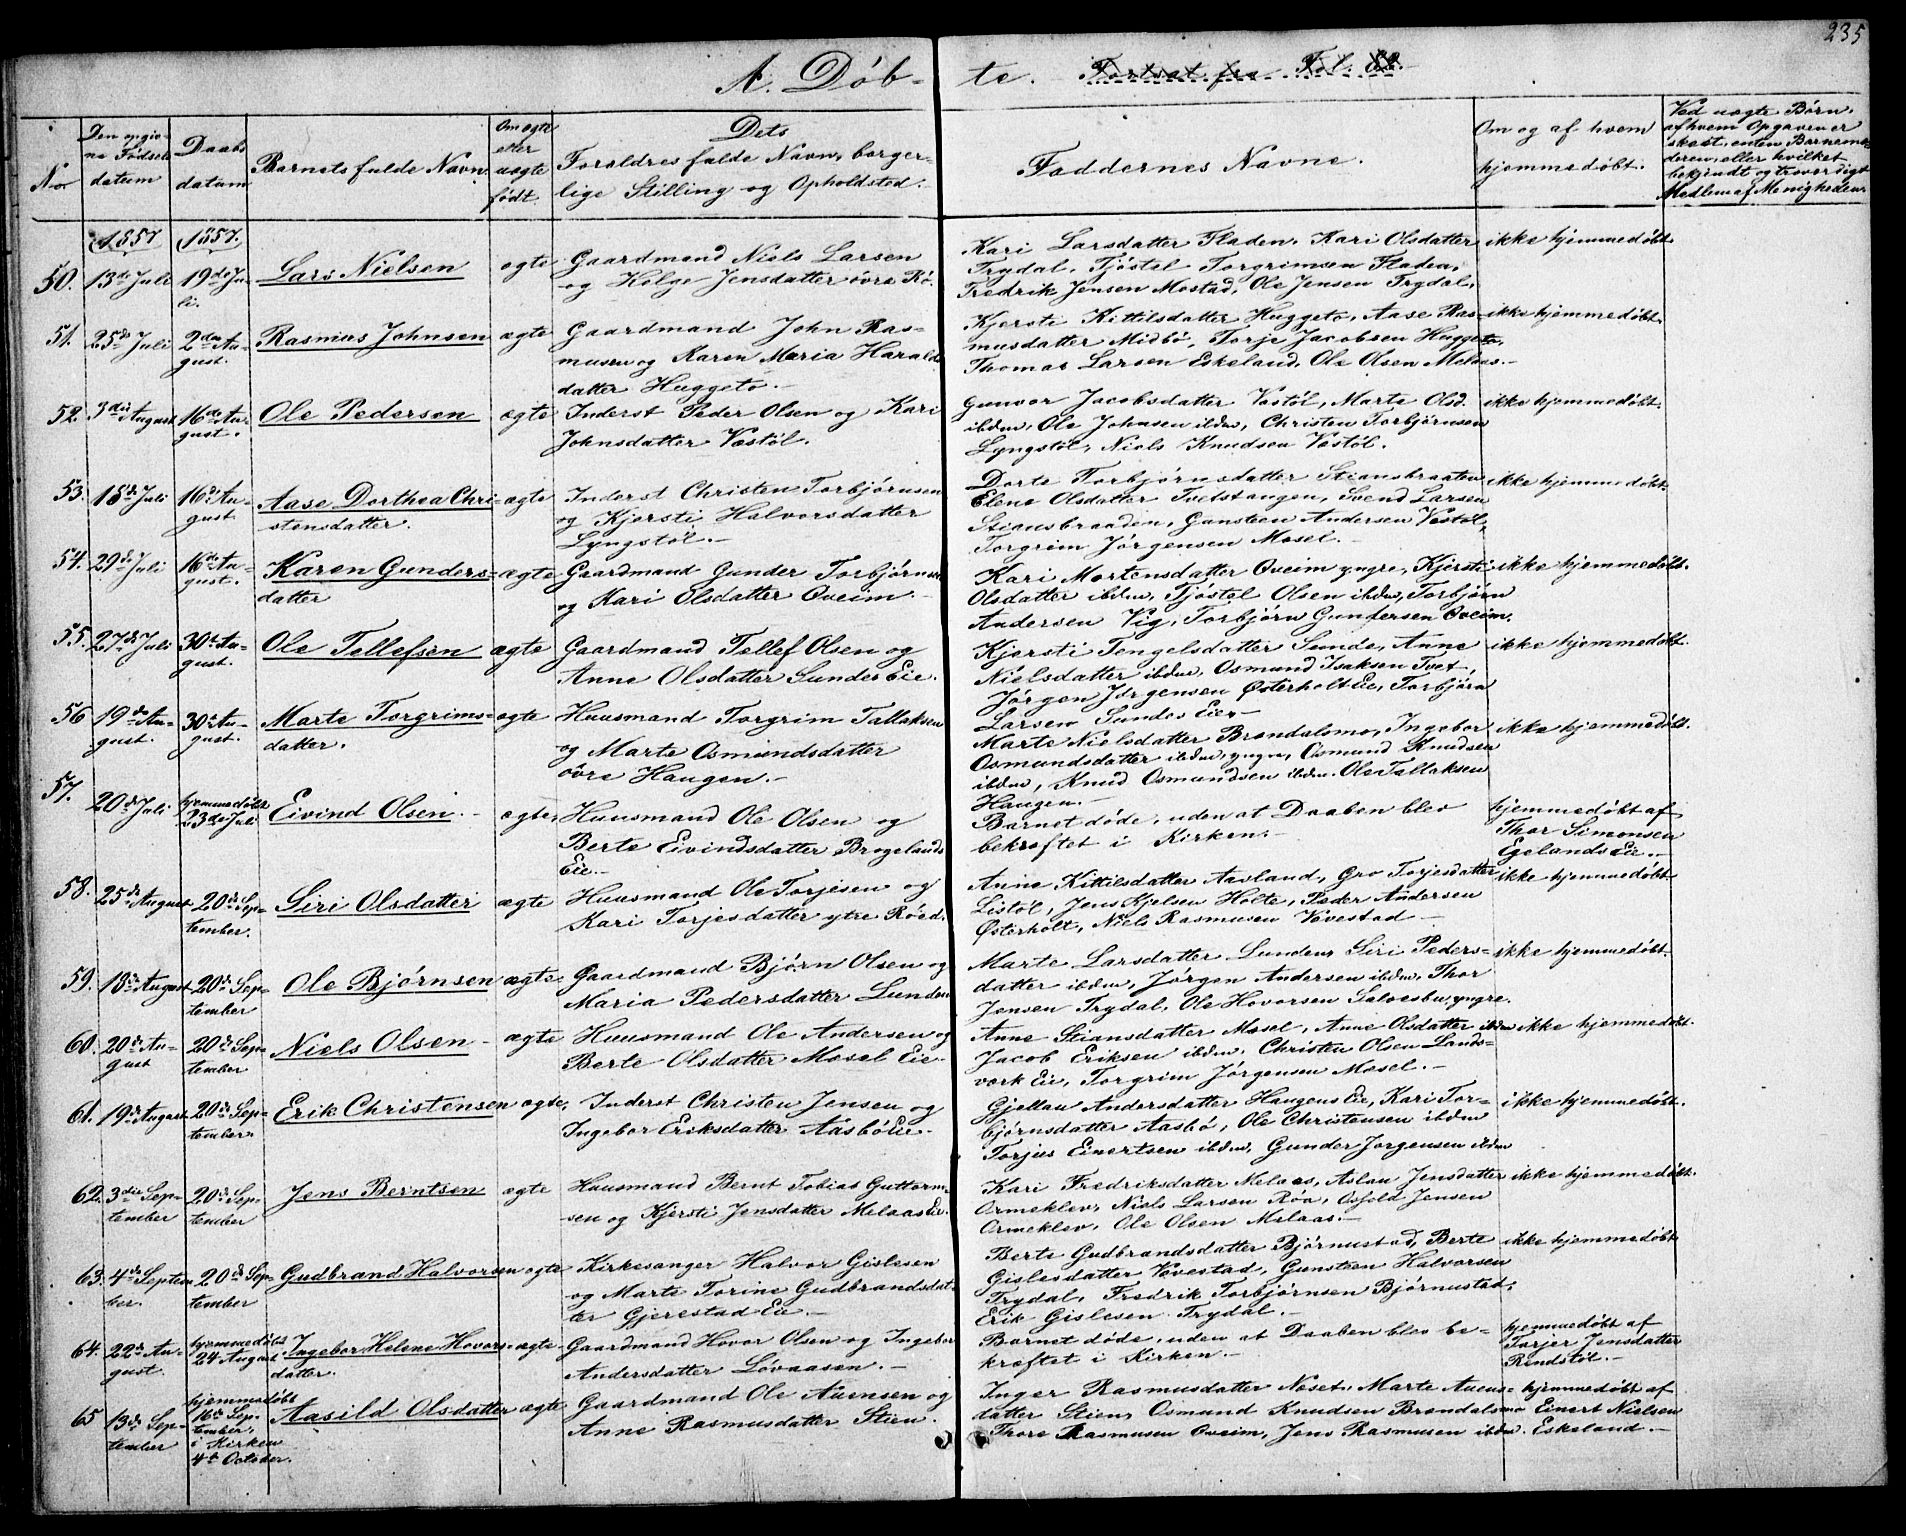 235
A. Döb-
te. Fortsat fra Fol.
No
Den opgiv-
ne Födsels
datum
Daabs
datum
Barnets fulde Navn.
Om ægte
eller
uægte
födt.
Dets
Forældres fulde Navn, borger-
lige Stilling og Opholdsted.
Faddernes Navne.
Om og af hvem
hjemmedöbt.
Ved uægte Börn,
af hvem Opgaven er
skeet, enten Barnemo-
deren, eller hvilket
bekjendt og troværdigt
Medlem af Menigheden.
1857
1857.
50. 13de Juli 19de Ju-
li.
Lars Nielsen
ægte
Gaardmand Niels Larsen
og Helge Jensdatter övre Rö.
Kari Larsdatter Fladen, Kari Olsdatter
Trydal, Tjöstel Torgrimsen Fladen,
Fredrik Jensen Mostad, Ole Jensen Trydal.
ikke hjemmedöbt.
51. 25de Juli 2den Au-
gust.
Rasmus Johnsen
ægte
Gaardmand John Ras-
musen og Karen Maria Harald
datter Huggeto.-
Kjersti Kittilsdatter Huggeto, Aase Ras-
musdatter Midbö, Torje Jacobsen Huggeto,
Thomas Larsen Eskeland, Ole Olsen Melaas.-
ikke hjemmedöbt.
52. 3die August 16de Au-
gust.
Ole Pedersen
ægte
Inderst Peder Olsen og Kari
Johnsdatter Væstöl.
Gunvor Jacobsdatter Væstöl, Marte Olsd.
ibdm, Ole Johnsen ibdm, Christen Torbjörnsen
Lyngstöl, Niels Knudsen Væstöl.
ikke hjemmedöbt.
53. 18de Juli 16de Au-
gust
Aase Dorthea Chri-
stensdatter.
ægte
Inderst Christen Torbjörnsen
og Kjersti Halvorsdatter
Lyngstöl.-
Dorte Torbjörnsdatter Stiansbraaten
Elene Olsdatter Tvetstangen, Svend Larsen
Stiansbraaden, Gunsteen Andersen Væstöl,
Torgrim Jörgensen Mosel.-
ikke hjemmedöbt.
54. 29de Juli 16de Au-
gust.
Karen Gunders-
datter
ægte
Gaardmand Gunder Torbjörnsen
og Kari Olsdatter Oveim.-
Kari Mortensdatter Oveim yngre, Kjersti
Olsdatter ibdm, Tjöstel Olsen ibdm, Torbjörn
Andersen Vig, Torbjörn Gundersen Oveim.
ikke hjemmedöbt.
55. 27de Juli 30te Au-
gust.
Ole Tellefsen
ægte
Gaardmand Tellef Olsen og
Anne Olsdatter Sunde Eie.
Kjersti Tengelsdatter Sunde, Anne
Nielsdatter ibdm, Osmund Isaksen Tvet,
Jörgen Jörgensen Österholt Eie, Torbjörn
Larsen Sundes Eie-
ikke hjemmedöbt.
56 19de Au-
gust. 30te Au-
gust.
Marte Torgrims-
datter.
ægte
Huusmand Torgrim Tallaksen
og Marte Osmundsdatter
övre Haugen.-
Marte Nielsdatter Brændalsmo, Ingebor
Osmundsdatter ibdm, yngre, Osmund Knudsen
ibdm, Knud Osmundsen ibdm. Ole Tallaksen
Haugen.-
ikke hjemmedöbt.
57. 20de Juli hjemmedöbt
23de Juli
Eivind Olsen.-
ægte.
Huusmand Ole Olsen og
Berte Eivindsdatter Brogelands
Eie.-
Barnet döde, uden at Daaben blev
bekræftet i Kirken.-
hjemmedöbt af
Thor Simonsen
Egelands Eie.-
58. 25de August 20de Sep-
tember.
Siri Olsdatter
ægte
Huusmand Ole Torjesen og
Kari Torjesdatter ytre Röed.
Anne Kittilsdatter Aasland, Gro Torjesdatter
Listöl, Jens Kjelsen Holte, Peder Andersen
Österholt, Niels Rasmusen Vævestad-
ikke hjemmedöbt.
59. 18de August 20de Sep-
tember
Ole Björnsen
ægte
Gaardmand Björn Olsen og
Maria Pedersdatter Lunden
Marte Larsdatter Lunden, Siri Peders-
datter ibdm, Jörgen Andersen ibdm, Thor
Jensen Trydal, Ole Hovorsen Salvesbu, yngre.
ikke hjemmedöbt.
60. 20de Au-
gust 20de Sep-
tember
Niels Olsen-
ægte
Huusmand Ole Andersen og
Berte Olsdatter Mosel Eie-
Anne Stiansdatter Mosel, Anne Olsdatter ibdm
Jacob Eriksen ibdm, Christen Olsen Lands-
værk Eie, Torgrim Jörgensen Mosel.-
ikke hjemmedöbt.
61. 19de August 20de Sep-
tember
Erik Christensen
ægte.
Inderst Christen Jensen og
Ingebor Eriksdatter Aasbö Eie-
Gjellau Andersdatter Haugens Eie, Kari Tor-
björnsdatter Aasbö, Ole Christensen ibdm
Torjus Einertsen ibdm, Gunder Jörgensen ibdm
ikke hjemmedöbt.
62. 3die Sep-
tember 20de Sep-
tember
Jens Berntsen
ægte
Huusmand Bernt Tobias Guttorm-
sen og Kjersti Jensdatter Melaas Eie.
Kari Fredriksdatter Melaas, Aslau Jensdatter
Ormeklev, Niels Larsen Röa, Osfold Jensen
Ormeklev, Ole Olsen Melaas.-
ikke hjemmedöbt.
63. 4de Septem
ber. 20de Sep-
tember
Gudbrand Halvorsen
ægte
Kirkesanger Halvor Gislesen
og Marte Torine Gudbrandsdat-
ter Gjerestad Eie.-
Berte Gudbrandsdatter Björnustad, Berte
Gislesdatter Vævestad, Gunsteen Halvorsen
Trydal, Fredrik Torbjörnsen Björnustad,
Erik Gislesen Trydal.-
ikke hjemmedöbt
64. 22de Au-
gust. hjemmedöbt
24 August
Ingebor Helene Hovors-
datter.
ægte
Gaardmand Hovor Olsen og Ingebor
Andersdatter Lövaasen.-
Barnet döde, uden at Daaben blev be-
kræftet i Kirken.-
hjemmedöbt af
Torjer Jensdatter
Rendstöl.-
65 13de Sep-
tember hjemmedöbt
16de Sep-
tember,
i Kirken
4de October.
Aasild Olsdatter
ægte
Gaardmand Ole Auensen og
Anne Rasmusdatter Stien.
Inger Rasmusdatter Neset, Marte Auens-
datter Stien, Osmund Knudsen Brændalsmo
Thore Rasmusen Oveim, Jens Rasmusen ibdm.
hjemmedöbt af
Einert Nielsen
Eskeland.-